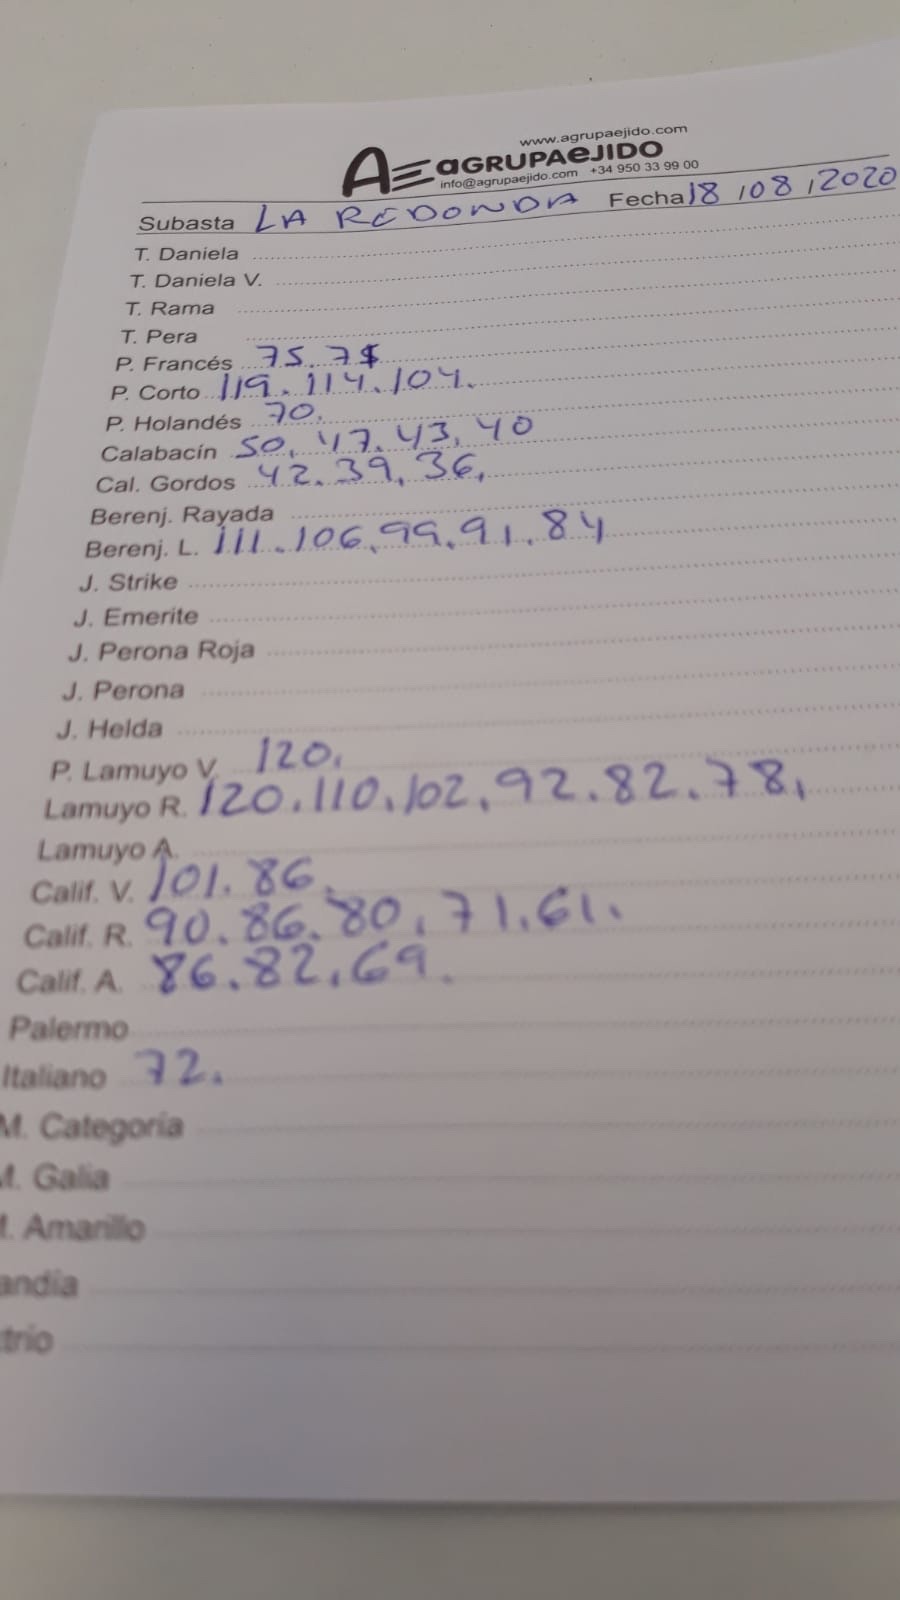 www.agrupaejido.com
AE aGRUPAeJIDO
info@agrupaejido.com +34 950 33 99 00
Subasta LA REDONDA Fecha 18, 08, 2020
T. Daniela
T. Daniela V.
T. Rama
T. Pera
P. Francés 75.
P. Corto 119. 114. 104.
P. Holandés 70.
Calabacín 50, 47. 43, 40
Cal. Gordos 42. 39, 36,
Berenj. Rayada
Berenj. L. 111. 106. 99. 91. 84
J. Strike
J. Emerite
J. Perona Roja
J. Perona
J. Helda
P. Lamuyo V. 120.
Lamuyo R. 120. 110. 102. 92. 82. 78,
Lamuyo A.
Calif. V. 101. 86.
Calif. R. 90. 86. 80, 71, 61.
Calif. A. 86. 82. 69.
Palermo
Italiano 72.
M. Categoría
M. Galia
M. Amarillo
andía
trio